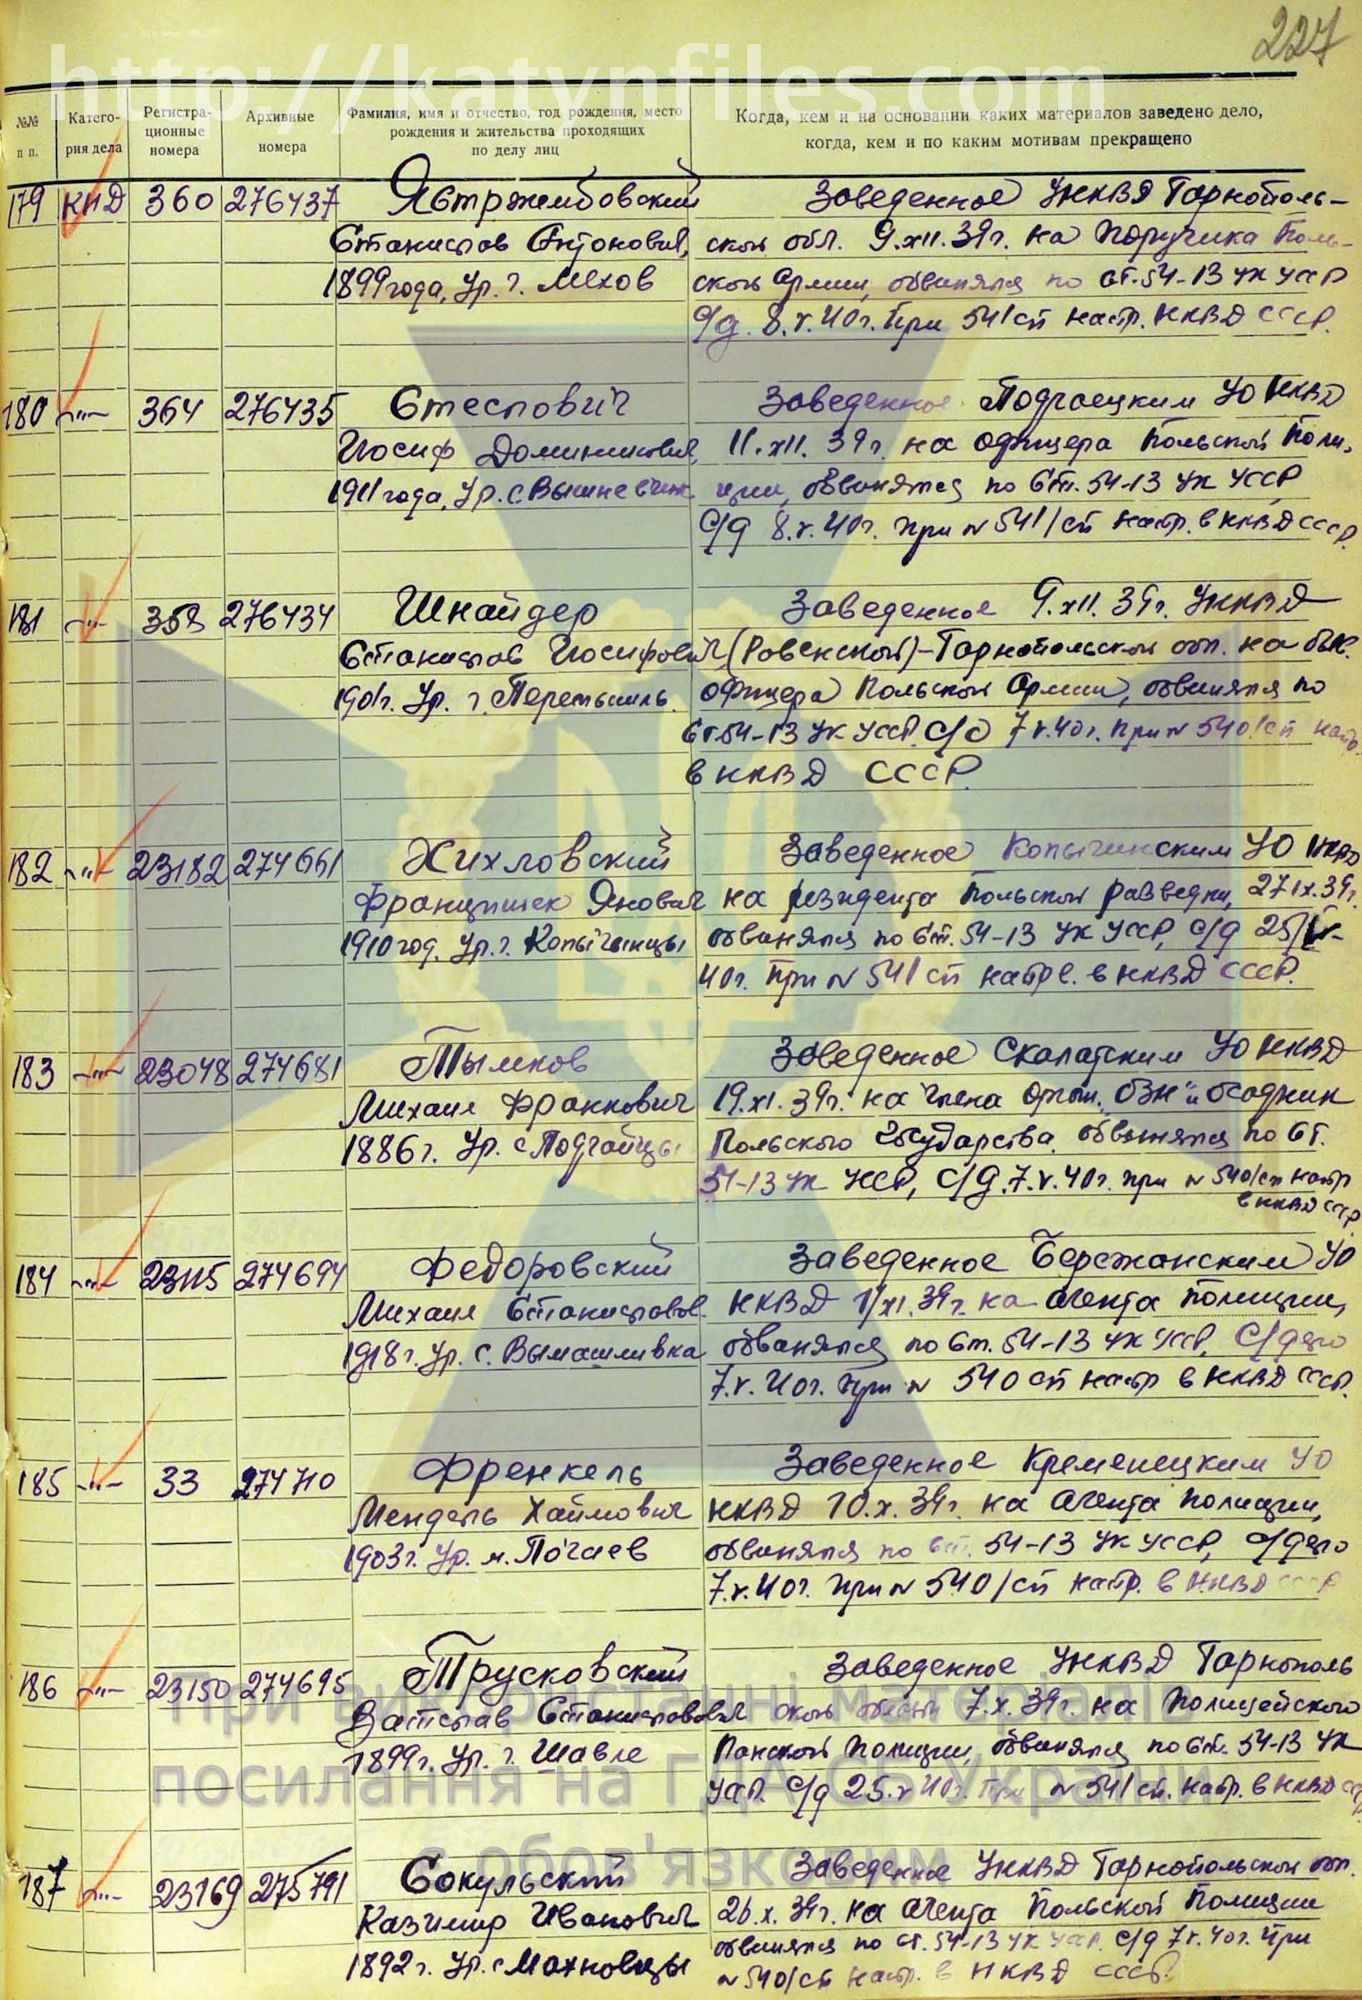 227
http://katynfiles.com
№№ п п.
Катего- рия дела
Регистра- ционные номера
Архивные номера
Фамилия, имя и отчество, год рождения, место рождения и жительства проходящих по делу лиц
Когда, кем и на основании каких материалов заведено дело, когда, кем и по каким мотивам прекращено
179 КПД 360 276437 Ястржембовский Заведенное УНКВД Тарнополь-
Станислав Антонович, ской обл. 9.XII.39г. на Поручика Поль-
1899 года, ур. г. Мехов ской Армии, обвинялся по ст. 54-13 УК УССР
с/д. 8.V.40г. При 541 сп напр. НКВД СССР.
180 -"- 364 276435 Стеслович Заведенное Подгаецким УО НКВД
Иосиф Доминикович, 11.XII.39г. на офицера Польской Поли-
1911 года, ур. с. ции, обвинялся по ст. 54-13 УК УССР
с/д 8.V.40г. при № 541/сп напр. в НКВД СССР.
181 -"- 358 276434 Шнайдер Заведенное 9.XII.39г. УНКВД
Станислав Иосифович (Ровенской)-Тарнопольской обл. на быв.
1901г. Ур. г. Перемышль. офицера Польской Армии, обвинялся по
ст 54-13 УК УССР. с/д 7.V.40г. при № 540/сп напр.
в НКВД СССР.
182 -"- 23182 274661 Хихловский Заведенное Копычинским УО НКВД
Францишек Янович на резидента Польской разведки, 27.IX.39г.
1910 год. Ур. г. Копычынцы обвинялся по ст. 54-13 УК УССР, с/д 25/V-
40г. При № 541 сп напр. в НКВД СССР.
183 -"- 23048 274681 Тымков Заведенное Скалатским УО НКВД
Михаил Франкович 19.XI.39г. на члена орган. "ОЗН" и осадник
1886г. Ур. с. Подгайцы Польского Государства. обвинялся по ст.
54-13 УК УССР, с/д. 7.V.40г. при № 540/сп напр
в НКВД СССР
184 -"- 23115 274694 Федоровский Заведенное Бережанским УО
Михаил Станиславов. НКВД 1/XI.39г. на агента полиции,
1918г. Ур. с. обвинялся по ст. 54-13 УК УССР, с/дело
7.V.40г. при № 540 сп напр в НКВД СССР.
185 -"- 33 274710 Френкель Заведенное Кременецким УО
Мендель Хаймович НКВД 10.X.39г. на агента полиции,
1903г. Ур. м. Почаев обвинялся по ст. 54-13 УК УССР, с/дело
7.V.40г. при № 540/сп напр. в НКВД СССР
186 -"- 23150 274695 Трусковский Заведенное УНКВД Тарнополь
Вацслав Станиславович ской области 7.X.39г. на Полицейского
1899г. Ур. г. Шавле Панской Полиции, обвинялся по ст. 54-13 УК
УССР. с/д 25.V.40г. При № 541 сп. напр. в НКВД СССР
187 -"- 23169 275791 Сокульский Заведенное УНКВД Тарнопольской обл.
Казимир Иванович 26.X.39г. на агента Польской Полиции
1892г. Ур. с. Махновцы обвинялся по ст. 54-13 УК УССР. с/д 7.V.40г. При
№ 540/сп напр. в НКВД СССР.
При використанні матеріалів
посилання на ГДА СБ України
є обов'язковим